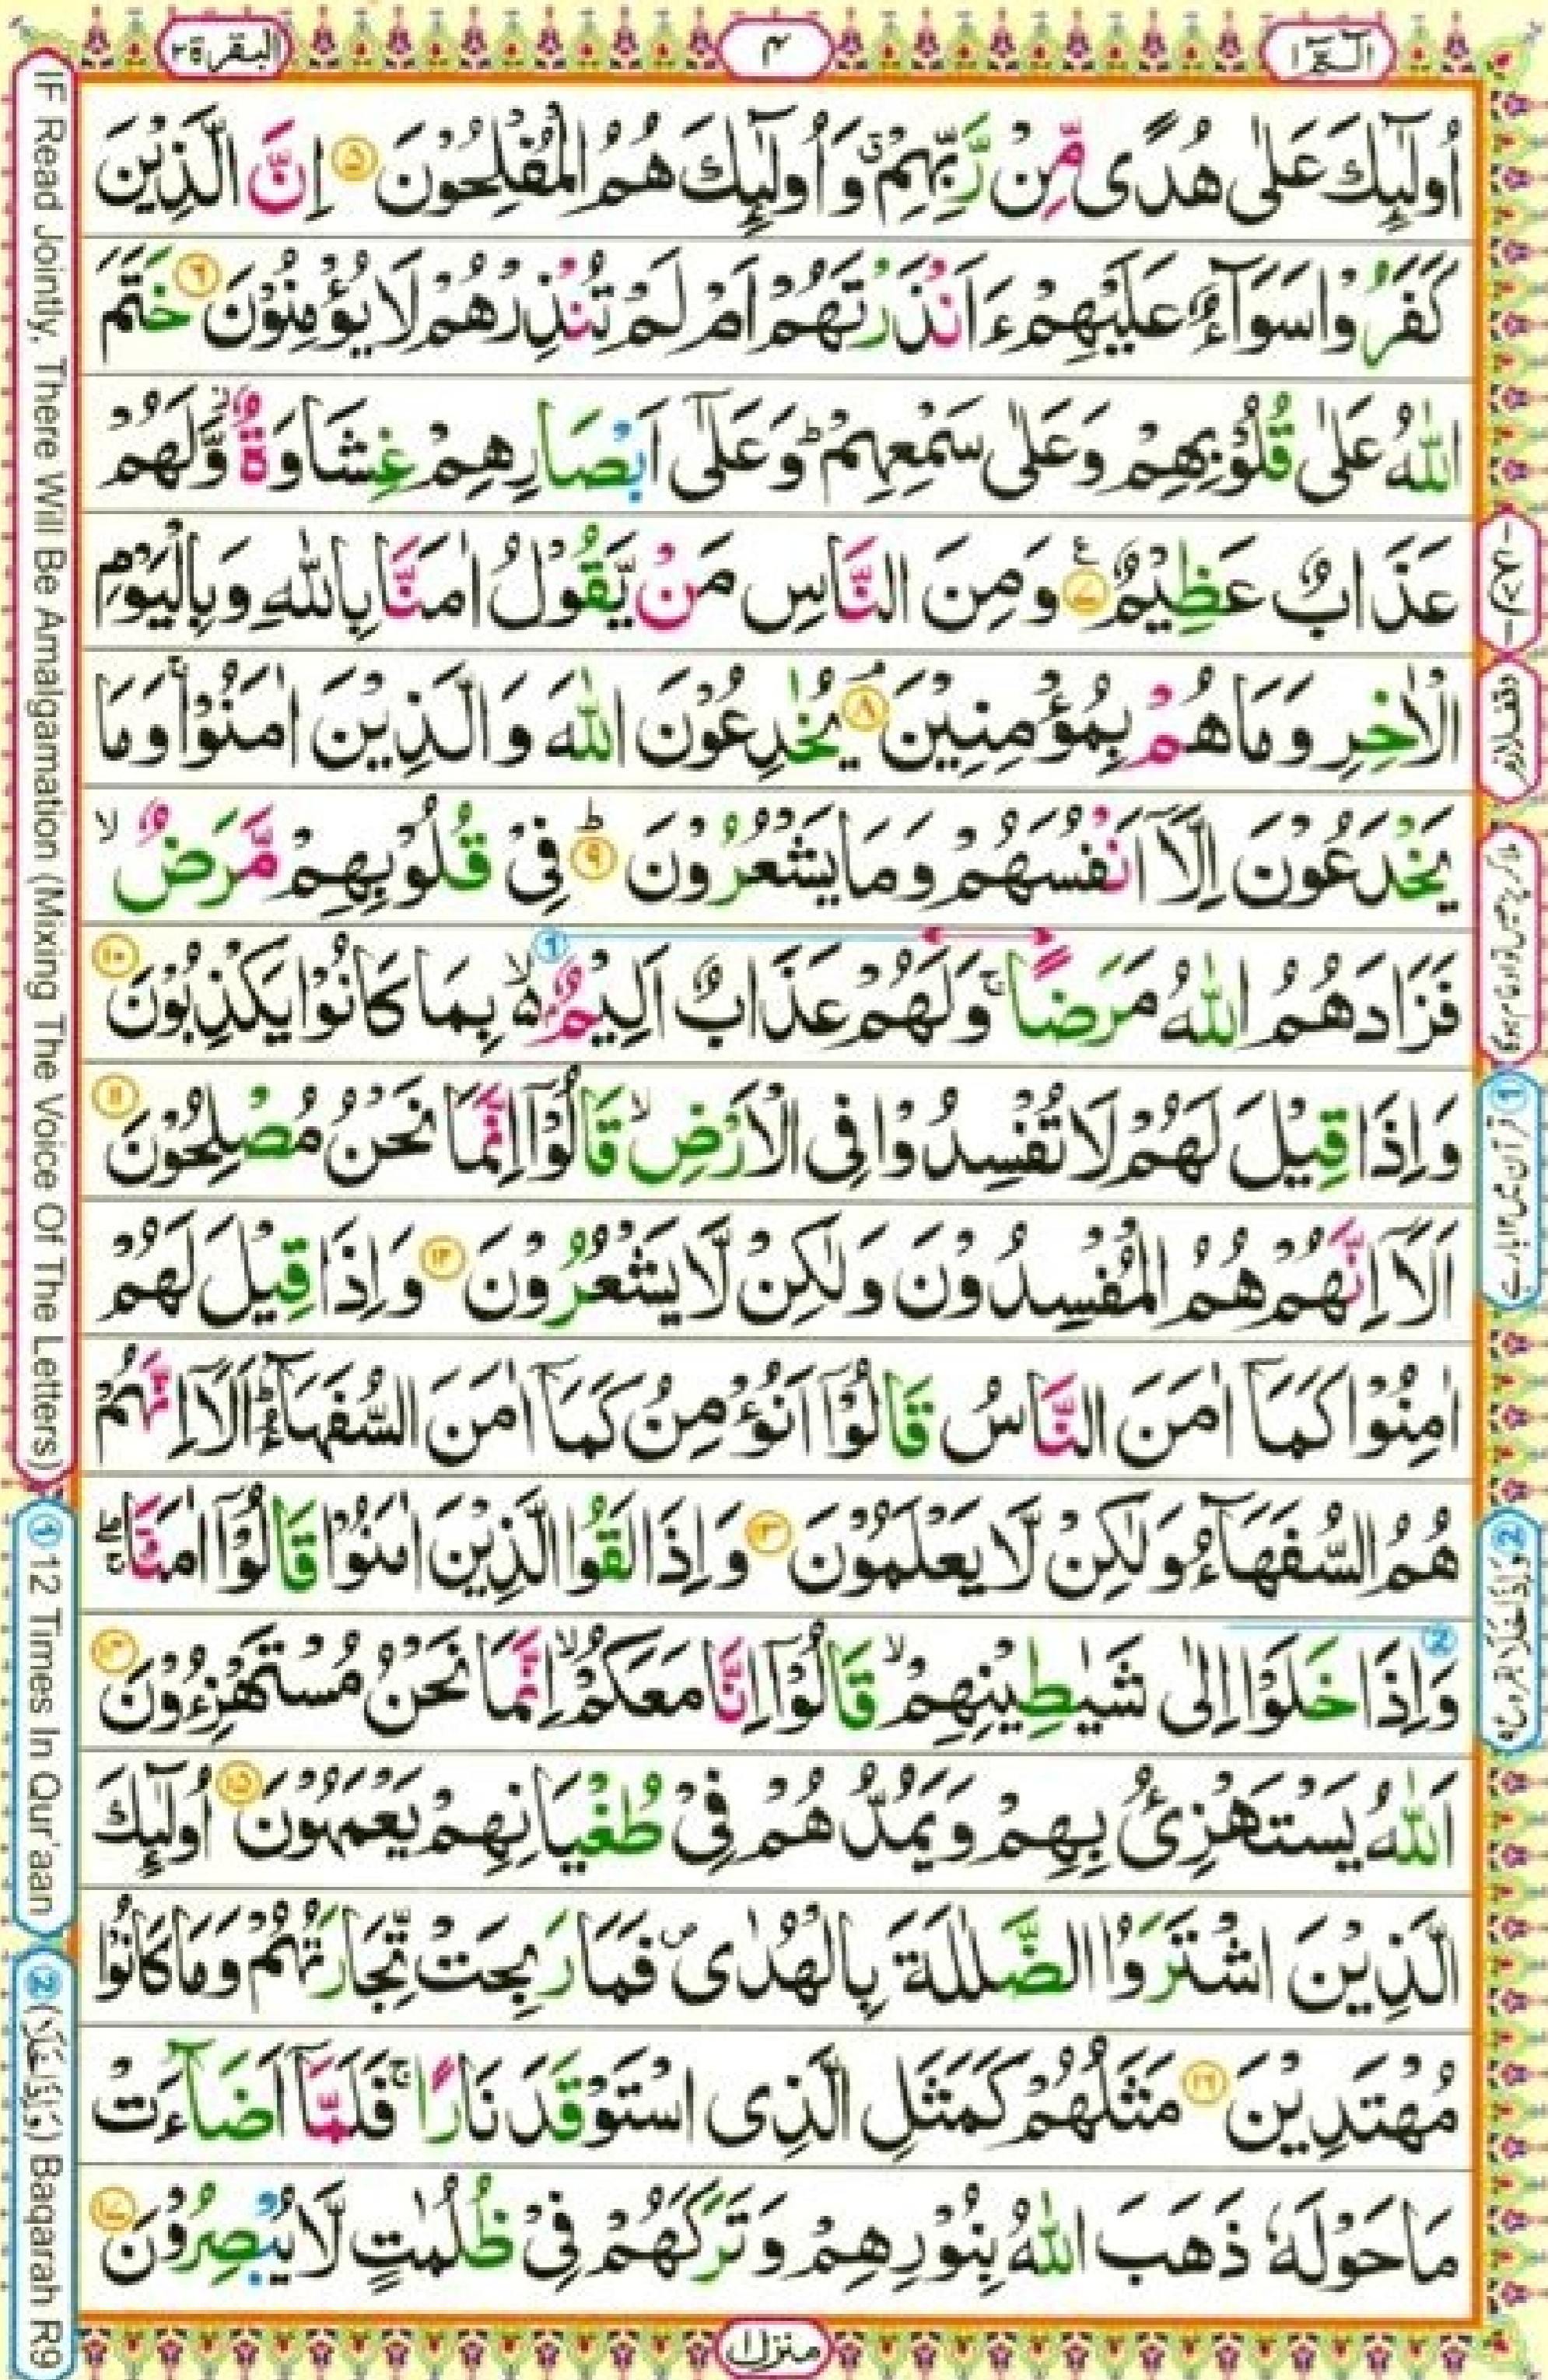 الٓمّٓ ١
٤
البقرة ٢
اُولٰٓئِكَ عَلٰى هُدًى مِّنْ رَّبِّهِمْ ۗ وَاُولٰٓئِكَ هُمُ الْمُفْلِحُوْنَ ۵ اِنَّ الَّذِيْنَ
كَفَرُوْا سَوَآءٌ عَلَيْهِمْ ءَاَنْذَرْتَهُمْ اَمْ لَمْ تُنْذِرْهُمْ لَا يُؤْمِنُوْنَ ۶ خَتَمَ
اللّٰهُ عَلٰى قُلُوْبِهِمْ وَعَلٰى سَمْعِهِمْ ؕ وَعَلٰٓى اَبْصَارِهِمْ غِشَاوَةٌ ز وَّلَهُمْ
عَذَابٌ عَظِيْمٌ ۷ ع وَمِنَ النَّاسِ مَنْ يَّقُوْلُ اٰمَنَّا بِاللّٰهِ وَبِالْيَوْمِ
الْاٰخِرِ وَمَا هُمْ بِمُؤْمِنِيْنَ ۘ ۸ يُخٰدِعُوْنَ اللّٰهَ وَالَّذِيْنَ اٰمَنُوْا ۚ وَمَا
يَخْدَعُوْنَ اِلَّآ اَنْفُسَهُمْ وَمَا يَشْعُرُوْنَ ؕ ۹ فِىْ قُلُوْبِهِمْ مَّرَضٌ ۙ
فَزَادَهُمُ اللّٰهُ مَرَضًا ۚ وَلَهُمْ عَذَابٌ اَلِيْمٌ ۢ ۙ بِمَا كَانُوْا يَكْذِبُوْنَ ۱۰
وَاِذَا قِيْلَ لَهُمْ لَا تُفْسِدُوْا فِى الْاَرْضِ ۙ قَالُوْٓا اِنَّمَا نَحْنُ مُصْلِحُوْنَ ۱۱
اَلَآ اِنَّهُمْ هُمُ الْمُفْسِدُوْنَ وَلٰكِنْ لَّا يَشْعُرُوْنَ ۱۲ وَاِذَا قِيْلَ لَهُمْ
اٰمِنُوْا كَمَآ اٰمَنَ النَّاسُ قَالُوْٓا اَنُؤْمِنُ كَمَآ اٰمَنَ السُّفَهَآءُ ؕ اَلَآ اِنَّهُمْ
هُمُ السُّفَهَآءُ وَلٰكِنْ لَّا يَعْلَمُوْنَ ۱۳ وَاِذَا لَقُوا الَّذِيْنَ اٰمَنُوْا قَالُوْٓا اٰمَنَّا ۖۚ
وَاِذَا خَلَوْا اِلٰى شَيٰطِيْنِهِمْ ۙ قَالُوْٓا اِنَّا مَعَكُمْ ۙ اِنَّمَا نَحْنُ مُسْتَهْزِءُوْنَ ۱۴
اَللّٰهُ يَسْتَهْزِئُ بِهِمْ وَيَمُدُّهُمْ فِىْ طُغْيَانِهِمْ يَعْمَهُوْنَ ۱۵ اُولٰٓئِكَ
الَّذِيْنَ اشْتَرَوُا الضَّلٰلَةَ بِالْهُدٰى ۪ فَمَا رَبِحَتْ تِّجَارَتُهُمْ وَمَا كَانُوْا
مُهْتَدِيْنَ ۱۶ مَثَلُهُمْ كَمَثَلِ الَّذِى اسْتَوْقَدَ نَارًا ۚ فَلَمَّآ اَضَآءَتْ
مَا حَوْلَهٗ ذَهَبَ اللّٰهُ بِنُوْرِهِمْ وَتَرَكَهُمْ فِىْ ظُلُمٰتٍ لَّا يُبْصِرُوْنَ ۱۷
منزل ١
IF Read Jointly, There Will Be Amalgamation (Mixing The Voice Of The Letters)
① 12 Times In Qur'aan
② (وَاِذَا خَلَا) Baqarah R9
وقف لازم
ملا کر پڑھیں تو ادغام ہوگا
① قرآن میں ۱۲ بار ہے